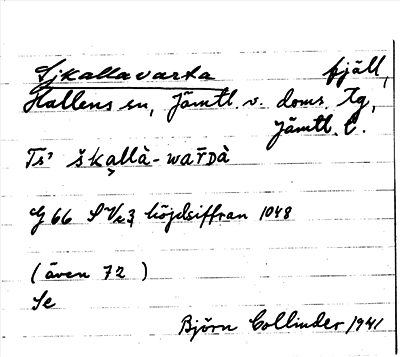 Sjkallavarta fjäll,
Hallens sn, Jämtl. v. doms. tg,
Jämtl. l.
Ts' škallà-wàr̄Dà
G 66 höjdsiffran 1048
(även 72 )
Se
Björn Collinder 1941